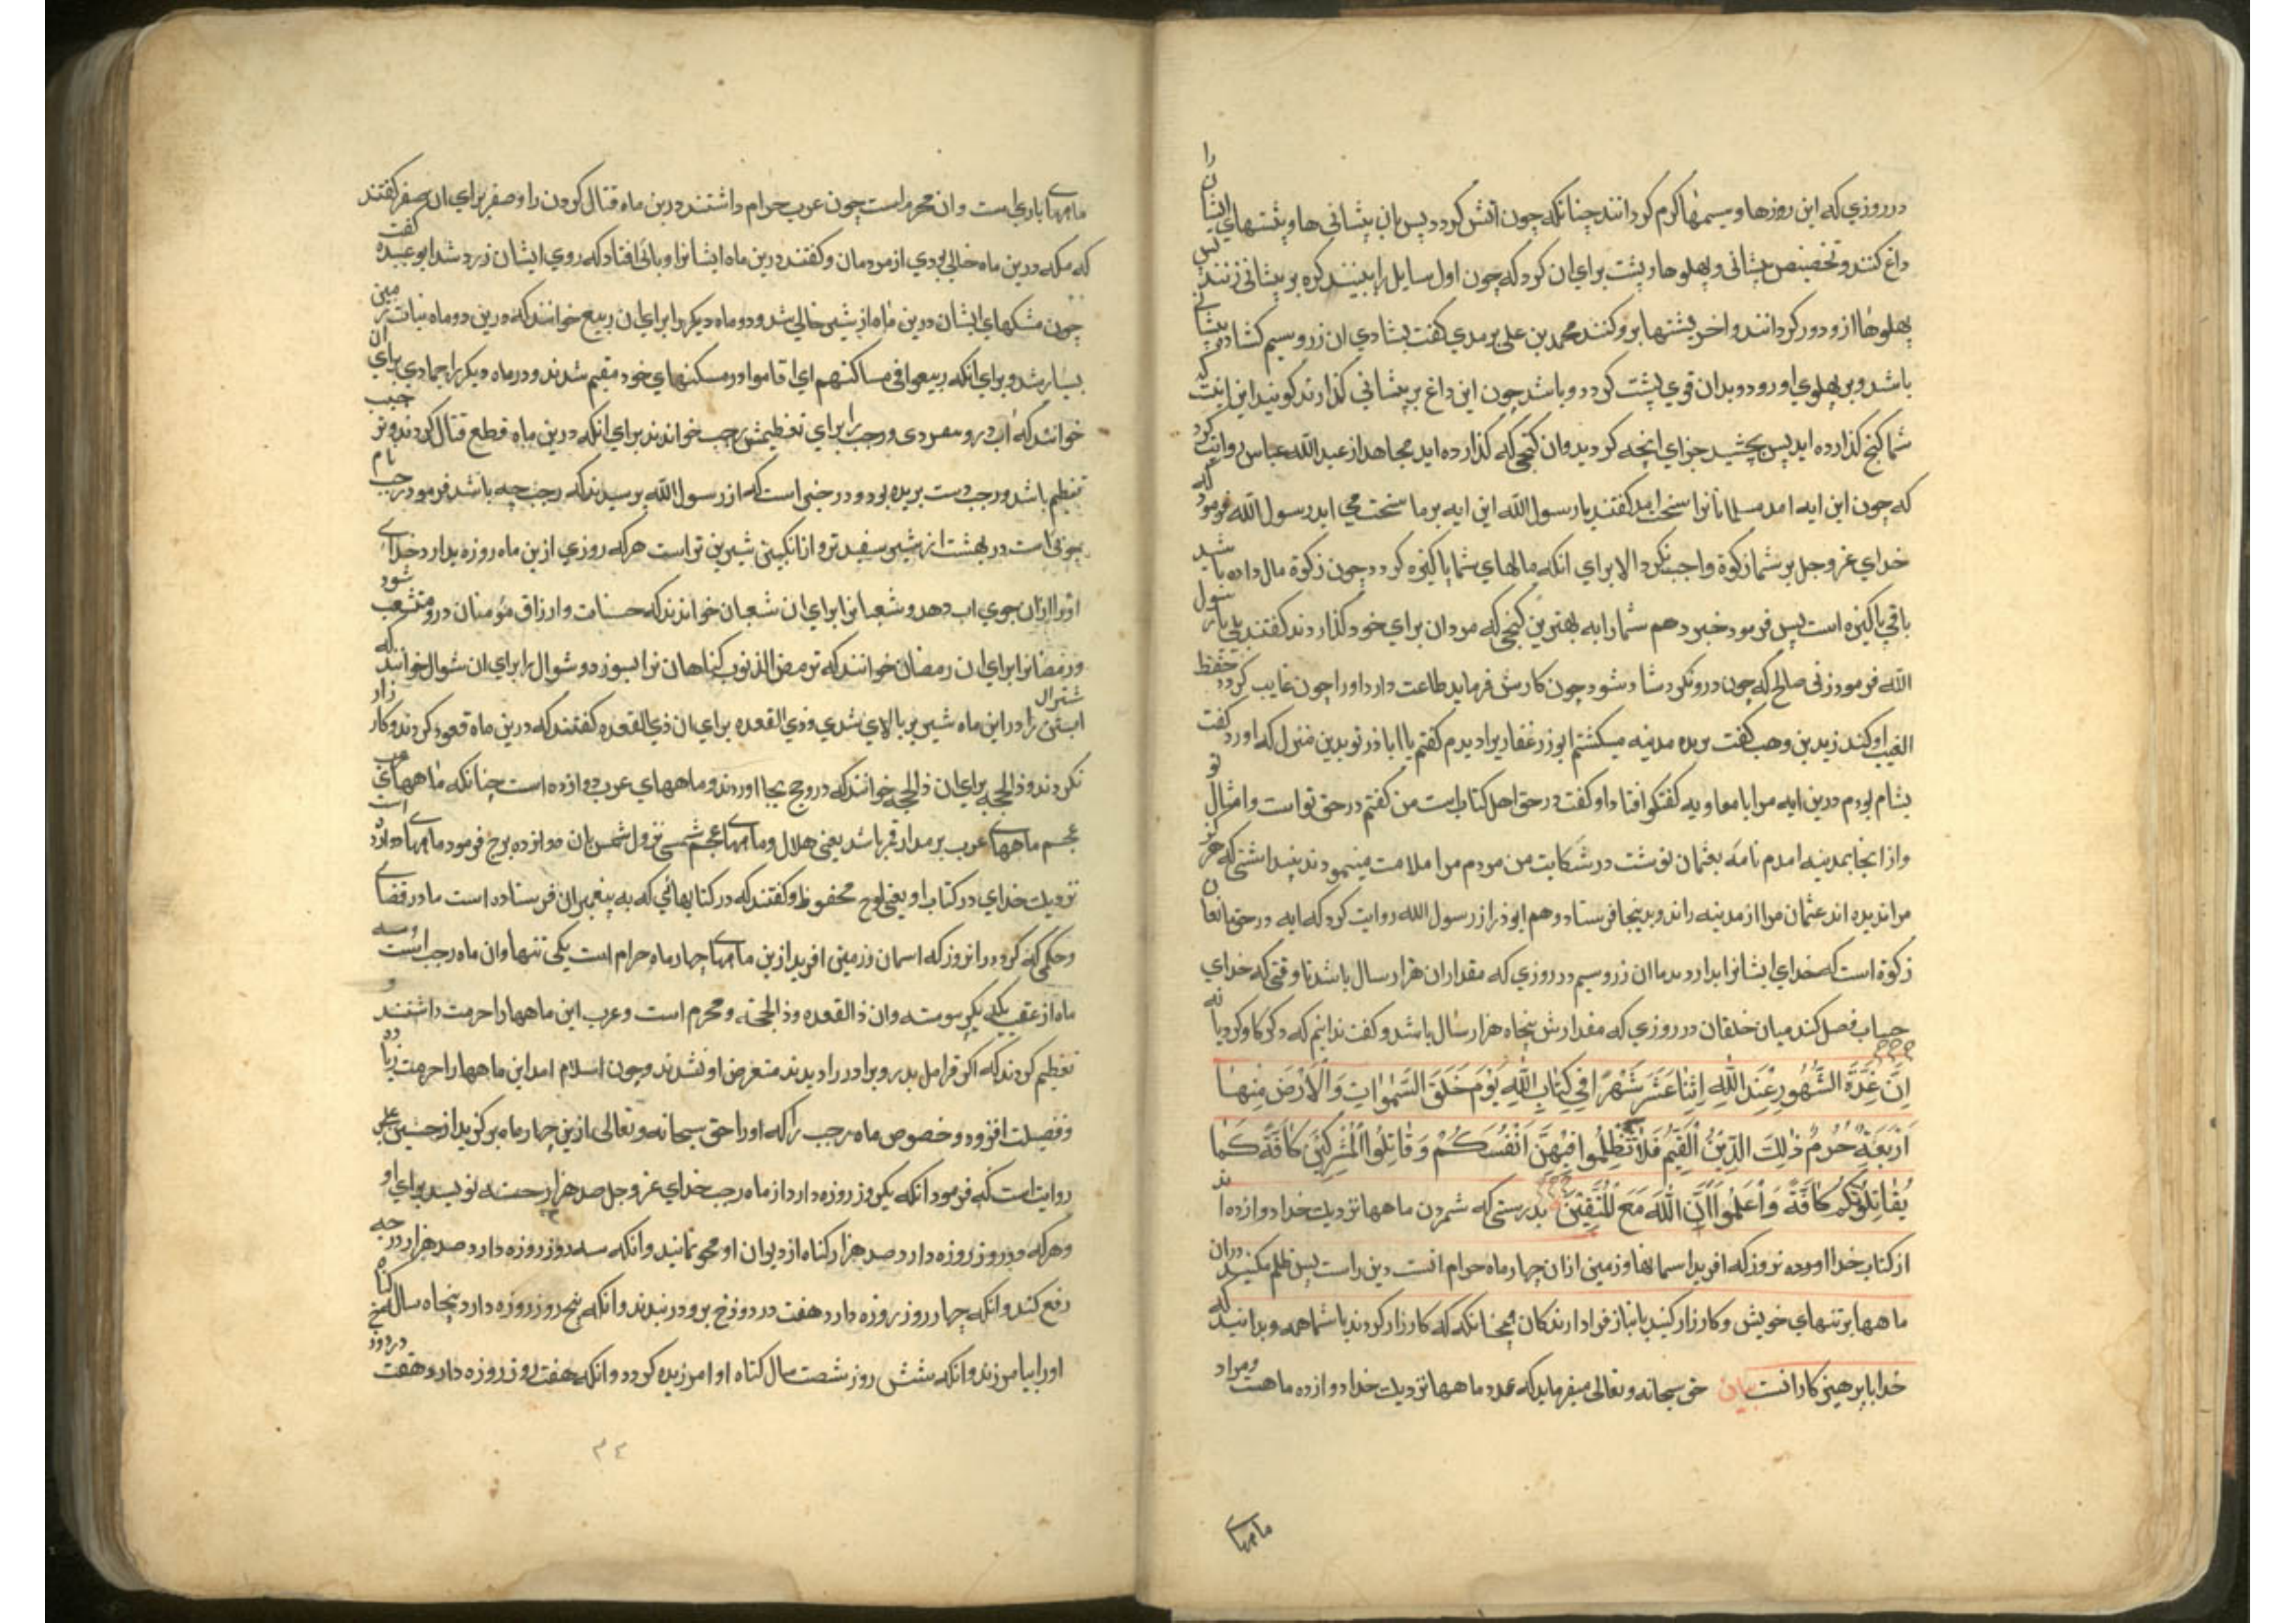 در روزي كه اين روزها و سيمها كرم كردانند چنانكه چون اتش كردد پس بان پيشاني ها و پشتهاي ايشان را
داغ كنند و تخصيص پيشاني و پهلوها و پشت براي ان كرد كه چون اول سايل را بينند كره بر پيشاني زنند پس
پهلوها از و دور كردانند و اخر پشتها برو كنند محمد بن علي ترمدي كفت بشادي ان زر و سيم كشاده پيشاني
باشد و بر پهلوي او رود و بدان قوي پشت كردد و باشد چون اين داغ بر پيشاني كذارند كويند اين انست كه
شما كنج كذارده ايد پس بچشيد جزاي انچه كرديد وان كنجي كه كذارده ايد مجاهد از عبد الله عباس روايت كرد
كه چون اين ايه امد مسلمانانرا سخت امد كفتند يا رسول الله اين ايه بر ما سخت مي ايد رسول الله فرمود كه
خداي عز و جل بر شما زكوة واجب نكرد الا براي انكه مالهاي شما پاكيزه كردد چون زكوة مال داده باشيد
باقي پاكيزه است پس فرمود خبر دهم شما را به بهترين كنجي كه مردان براي خود كذارند كفتند بلي يا رسول
الله فرمود زني صالح كه چون درو نكرد شاد شود چون كارش فرمايد طاعت دارد او را چون غايب كردد حفظ
الغيب او كند زيد بن وهب كفت بربده مدينه ميكشتم ابوزر غفاريرا ديدم كفتم يا ابا ذر تو بدين منزل كه اورد كفت
بشام بودم درين ايه مرا با معاويه كفتكو افتاد او كفت در حق اهل كتاب است من كفتم در حق تو است و امثال تو
و از انجا بمدينه امدم نامه بعثمان نوشت در شكايت من مردم مرا ملامت مينمودند پنداشتي كه هركز
مرا نديده اند عثمان مرا از مدينه راند و بدينجا فرستاد و هم ابوذر از رسول الله روايت كرد كه ايه در حق مانعان
زكوة است كه خداي ايشانرا بدارد بدما ان زر و سيم در روزي كه مقدار ان هزار سال باشد تا وقتي كه خداي
حساب فصل كند ميان خلقان در روزي كه مقدارش پنجاه هزار سال باشد و كفت ندانيم كه ذكر كاو كرد يا نه
اِنَّ عِدَّةَ الشُّهُورِ عِنْدَ اللّٰهِ اثْنَا عَشَرَ شَهْرًا فِي كِتَابِ اللّٰهِ يَوْمَ خَلَقَ السَّمٰوَاتِ وَالْاَرْضَ مِنْهَا
اَرْبَعَةٌ حُرُمٌ ذٰلِكَ الدِّيْنُ الْقَيِّمُ فَلَا تَظْلِمُوا فِيْهِنَّ اَنْفُسَكُمْ وَقَاتِلُوا الْمُشْرِكِيْنَ كَافَّةً كَمَا
يُقَاتِلُوْنَكُمْ كَافَّةً وَاعْلَمُوا اَنَّ اللّٰهَ مَعَ الْمُتَّقِيْنَ بدرستي كه شمردن ماهها نزديك خدا دوازده اند
از كتاب خدا اورده نروز كه افريد اسمانها و زمين از ان چهار ماه حرام انست دين راست پس ظلم مكنيد دران
ماهها بر تنهاي خويش و كارزار كنيد با نباز فرا دارندكان همچنانكه كه كارزار كردند با شما همه و بدانيد كه
خدا با پرهيز كارانست بيان حق سبحانه و تعالي ميفرمايد كه عدد ماهها نزديك خدا دوازده ماهست و مراد
ماههاي
ماههاي باري است وان محرم است چون عرب حرام داشتند درين ماه قتال كردن را و صفر براي ان صفر كفتند
كه مكه درين ماه خالي بودي از مردمان و كفتند درين ماه ايشانرا وبائي افتاد كه روي ايشان زرد شد ابو عبيده كفت
چون مشكهاي ايشان درين ماه از شير خالي شد و دو ماه ديكر را براي ان ربيع خوانند كه درين دو ماه نبات زمين
بسيار شد و براي انكه ربيعوا في مساكنهم اي اقاموا و در مسكنهاي خود مقيم شدند و در ماه ديكر را جمادي براي ان
خوانند كه اب در و بفسردي و رجب را براي تعظيمش رجب خواندند براي انكه درين ماه قطع قتال كردند و ترجيب
تعظيم باشد و رجب دست بريده بود و در خبر است كه از رسول الله پرسيدند كه رجب چه باشد فرمود رجب نام
جوئي است در بهشت از شير سفيد تر و از انكبين شيرين تر است هركه روزي ازين ماه روزه بدارد خداي
او را ازان جوي اب دهد و شعبانرا براي ان شعبان خواندند كه حسنات و ارزاق مؤمنان درو منشعب شود
و رمضانرا براي ان رمضان خوانند كه ترمض الذنوب كناهان را بسوزد و شوال را براي ان شوال خوانند كه
شتران ابستن را در اين ماه شير بر بالاي شدي و ذي القعده براي ان ذي القعده كفتند كه درين ماه قعود كردند و كارزار
نكردند و ذالحجه براي ان ذالحجه خوانند كه درو حج بجا اوردند و ماههاي عرب دوازده است چنانكه ماههاي
عجم ماههاي عرب بر مدار قمر باشد يعني هلال و ماههاي عجم شمسي نزول شمس بان دوازده برج فرمود ماهها دوازده است
نزديك خداي در كتاب او يعني لوح محفوظ و كفتند كه در كتابهائي كه به پيغمبران فرستاده است ما در قضاي
و حكمي كه كرد در انروز كه اسمان و زمين افريد ازين ماهها چهار ماه حرام است يكي تنها وان ماه رجب است و سه
ماه از عقب يكديكر پيوسته وان ذالقعده و ذالحجة و محرم است و عرب اين ماهها را حرمت داشتند و
تعظيم كردند كه اكر قرامل پدر و برادر را ديدند متعرض او نشدند و چون اسلام امد اين ماهها را حرمت زياده
و فضيلت افزود و خصوص ماه رجب را كه او را حق سبحانه و تعالي ازين چهار ماه بركزيد از حسين علي
روايت است كه فرمود انكه يكروز روزه دارد از ماه رجب خداي عز و جل صد هزار حسنه نويسد براي او
و هركه دو روز روزه دارد صد هزار كناه از ديوان او محو نمايند و انكه سه روز روزه دارد صد هزار درجه
رفع كند و انكه چهار روز روزه دارد هفت در دوزخ برو در بندند و انكه پنج روز روزه دارد پنجاه ساله كناه
او را بيامرزند و انكه شش روز شصت سال كناه او امرزيده كردد و انكه هفت روز روزه دارد هفت